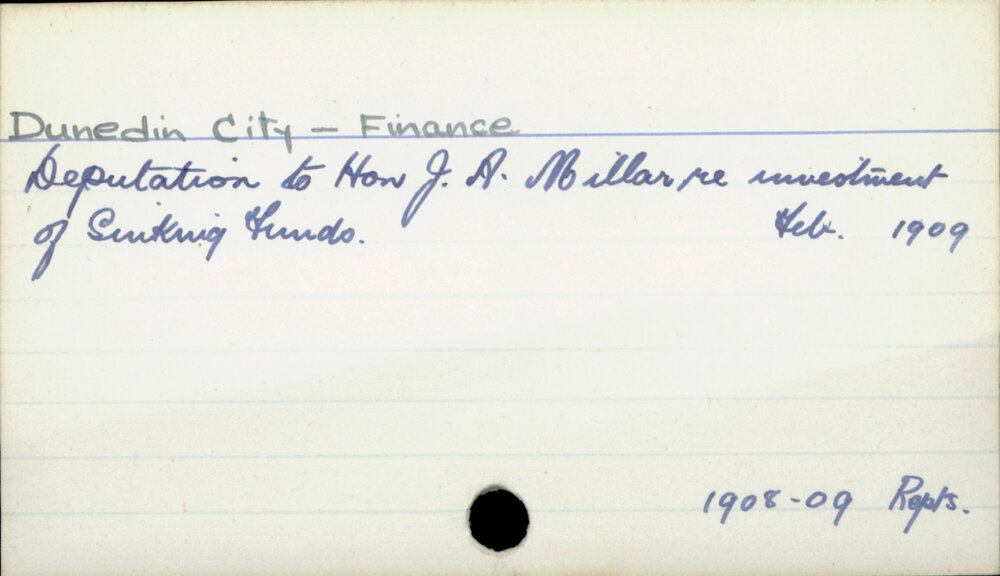 Dunedin City – Finance
Deputation to Hon J. A. Millar re investment
of Sinking Funds. Feb. 1909
1908-09 Repts.